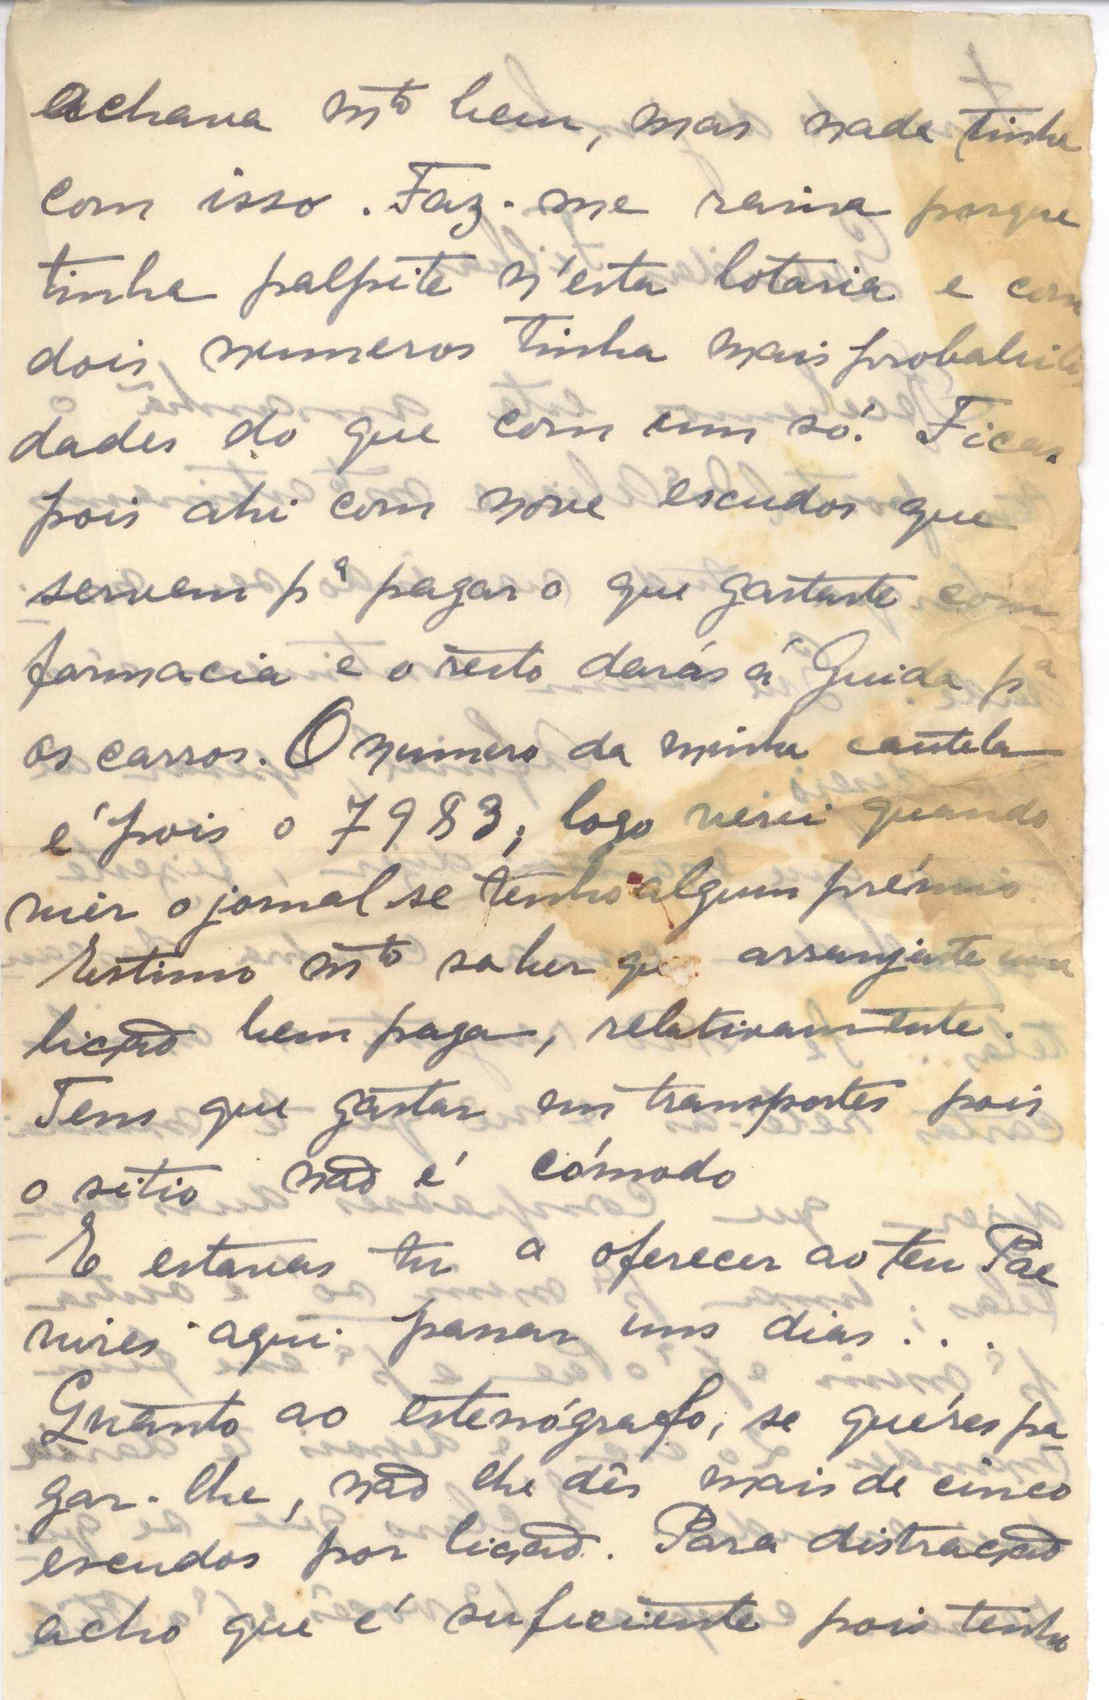 achava mto bem, mas nada tinha
com isso. Faz-me raiva porque
tinha palpite n'esta lotaria e com
dois numeros tinha mais probabili
dades do que com um só. Ficas
pois ahi com nove escudos que
servem pa pagar o que gastaste com
farmacia e o resto darás á Guida pa
os carros. O numero da minha cautela
é pois o 7983; logo verei quando
vier o jornal se tenho algum prémio.
Estimo mto saber qe arranjaste uma
lição bem paga, relativamente.
Tens que gastar em transportes pois
o sitio não é cómodo
E estavas tu a oferecer ao teu Pae
vires aqui passar uns dias...
Quanto ao estenógrafo, se quéres pa-
gar-lhe, não lhe dês mais de cinco
escudos por lição. Para distracção
acho que é suficiente pois tenho